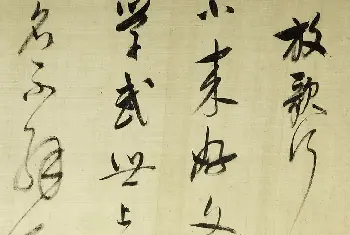 放歌行
小来好文
学武世上
名不解